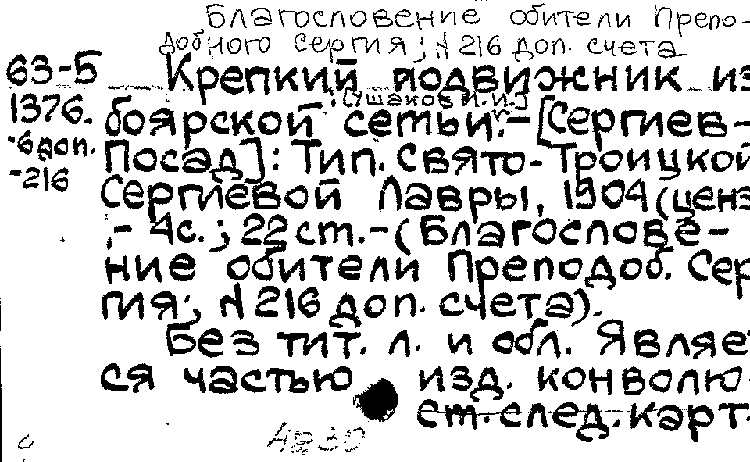 Благословение обители Препо-
добного Сергия; № 216 доп. счета
63-5
1376.
-6 доп.
-216
Крепкий подвижник из
[Ушаков И.И.]
боярской семьи. - [Сергиев-
Посад]: Тип. Свято-Троицкой
Сергиевой Лавры, 1904 (ценз
.- 4с.; 22 см. - (Благослове-
ние обители Преподоб. Сер
гия; № 216 доп. счета).
Без тит. л. и обл. Являет
ся частью изд. конволю
см. след. карт.